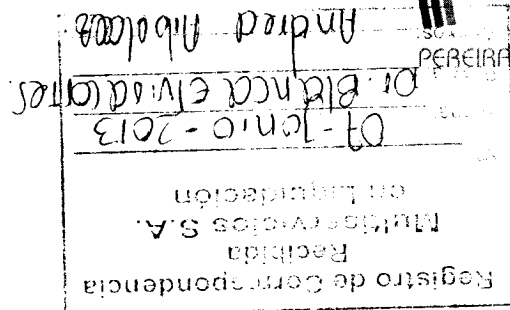 Registro de Correspondencia
Recibida
Multiservicios S.A.
en Liquidación
07-Junio-2013
Dr. Blanca Elvisa
Andrea
PEREIRA